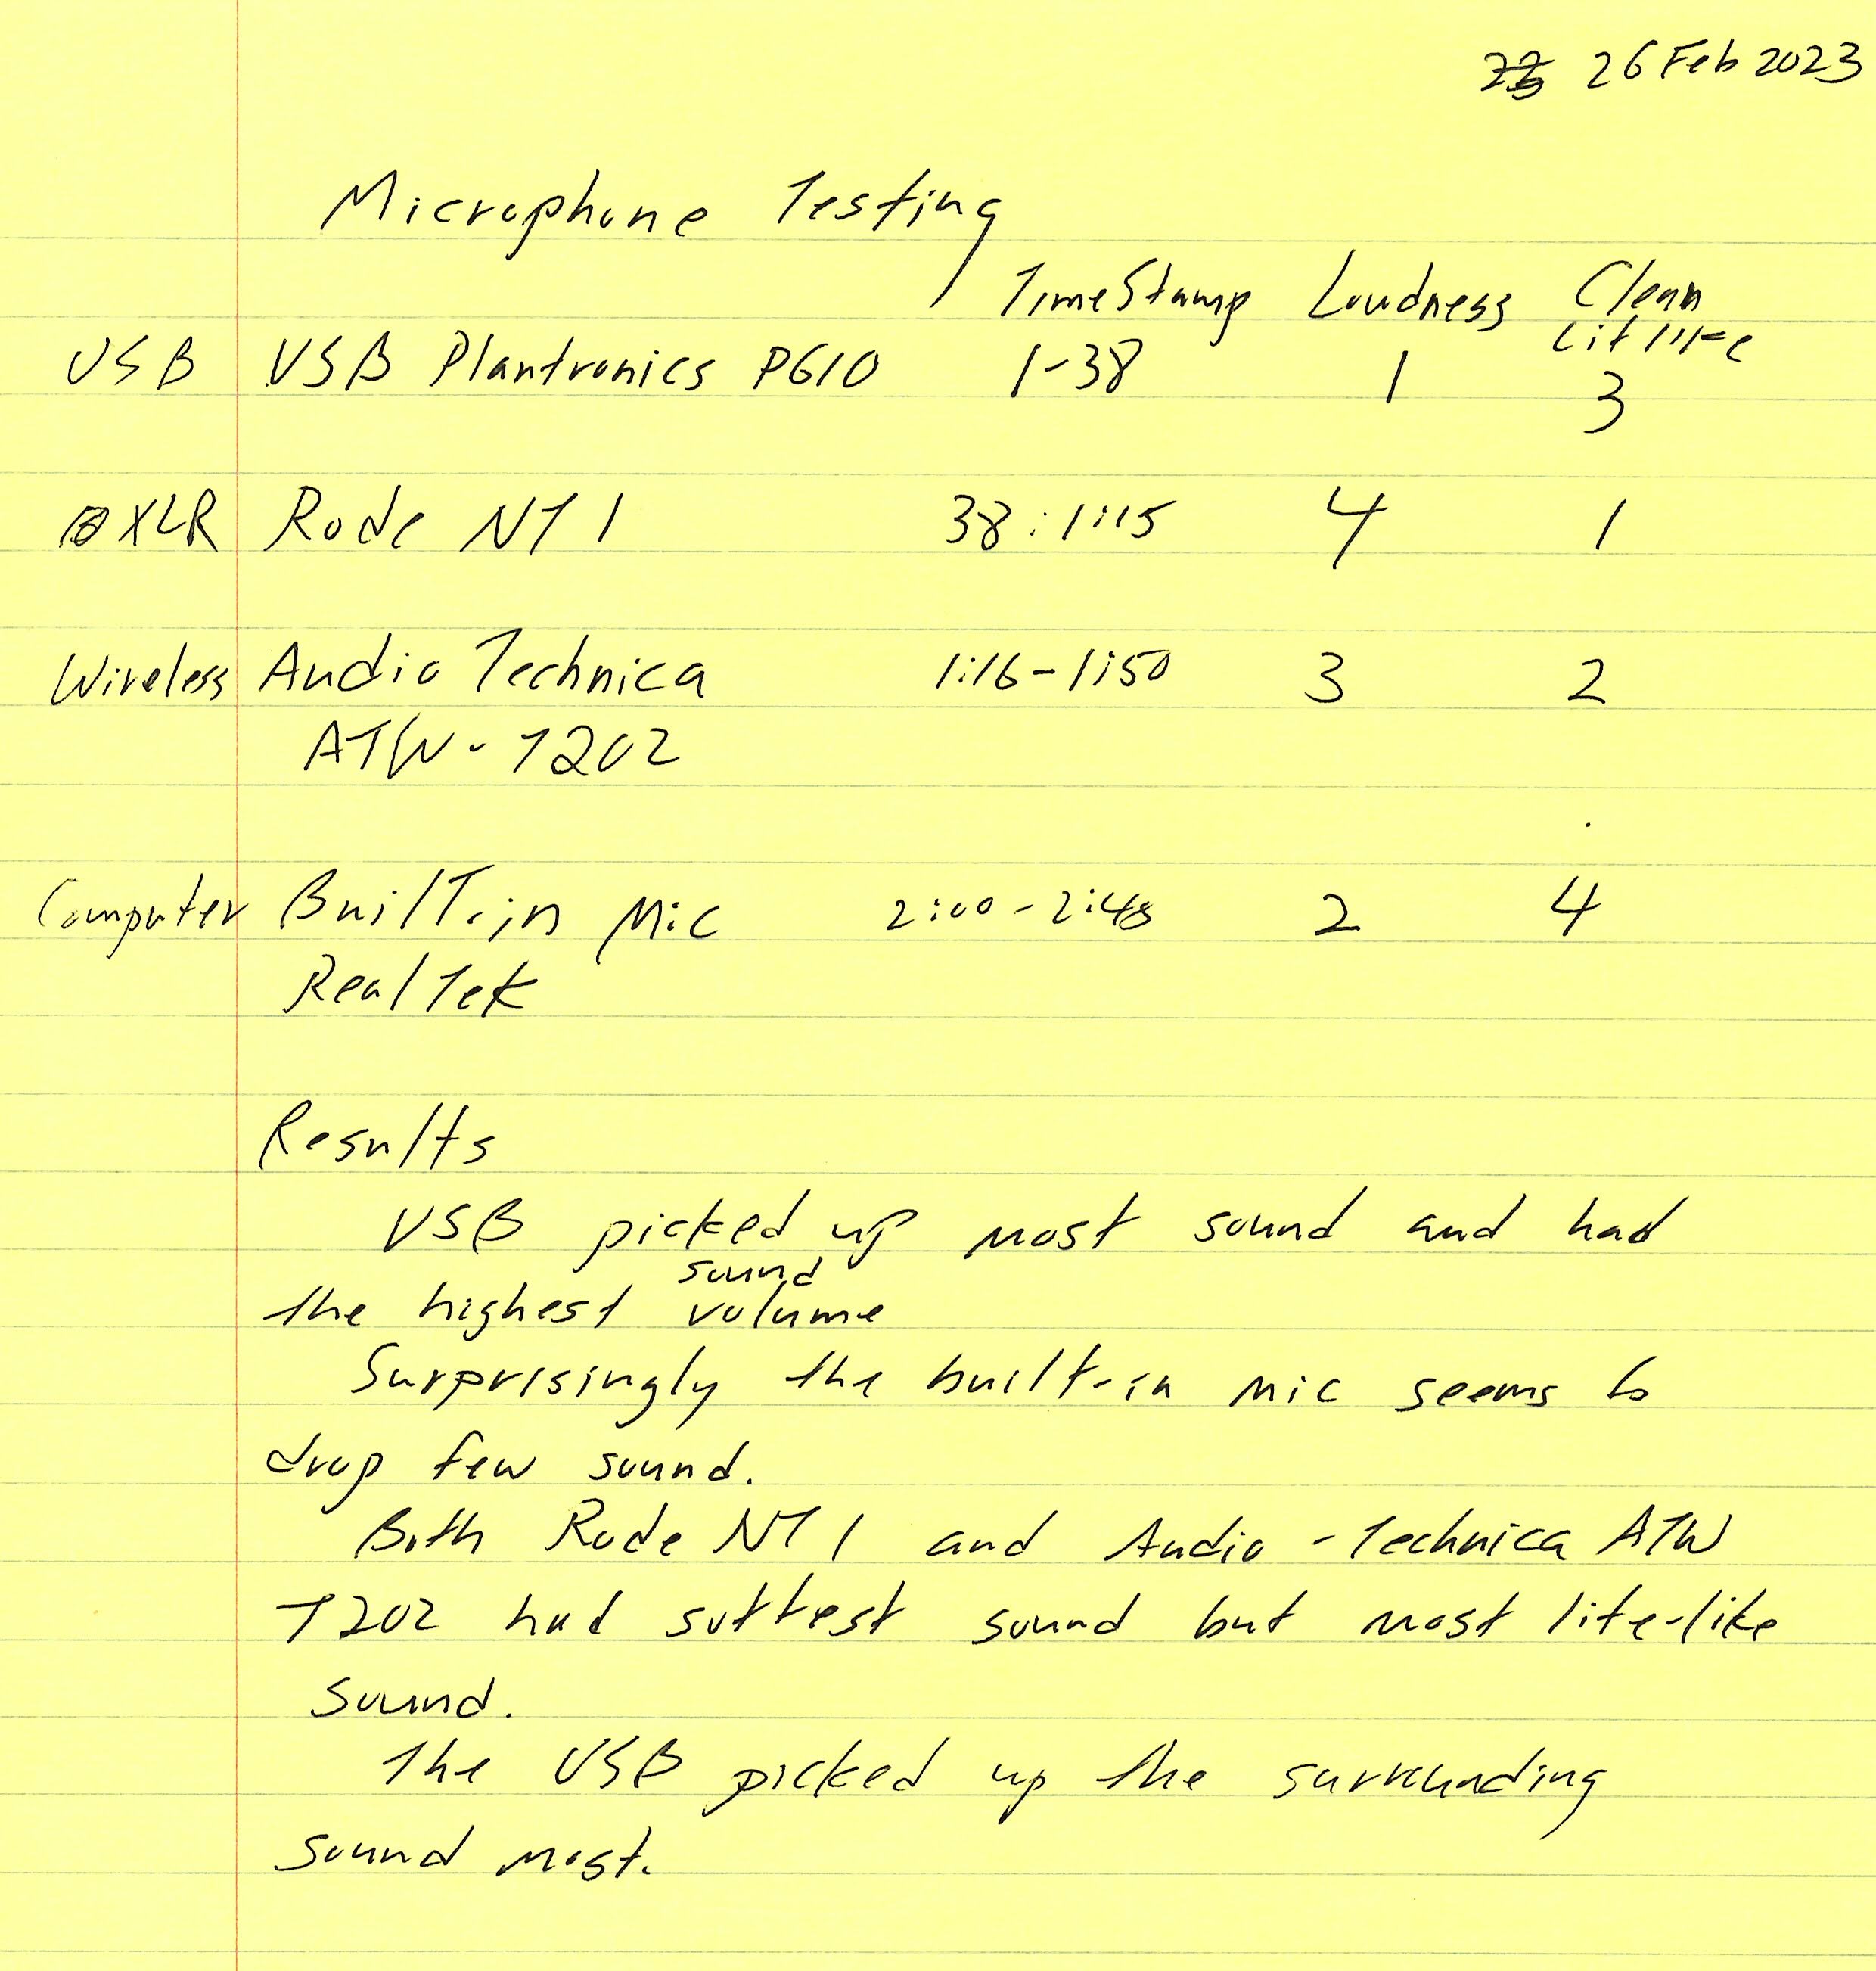 26 Feb 2023
Microphone Testing
TimeStamp Loudness Clean
Litlike
USB USB Plantronics P610 1-38 1 3
XLR Rode NT1 38:1:15 4 1
Wireless Audio Technica 1:16-1:50 3 2
ATW-T202
Computer Built-in Mic 2:00-2:48 2 4
RealTek
Results
USB picked up most sound and had
sound
the highest volume
Surprisingly the built-in mic seems to
drop few sound.
Both Rode NT1 and Audio-Technica ATW
T202 had softest sound but most life-like
sound.
The USB picked up the surrounding
sound most.